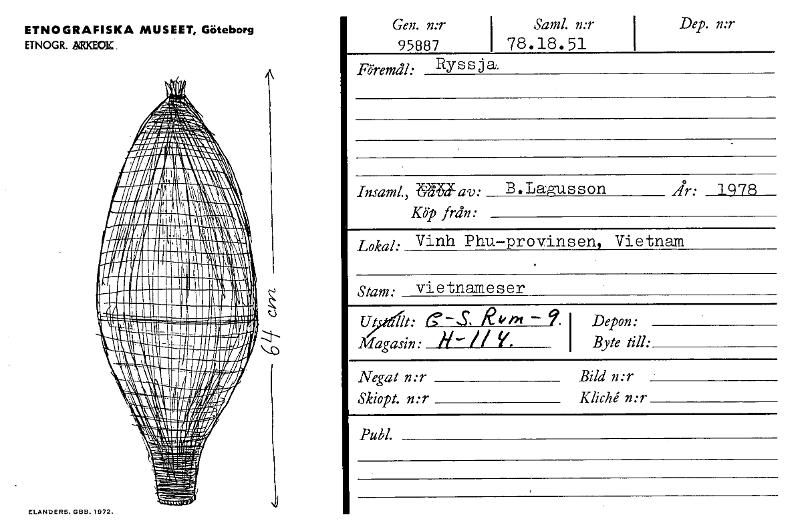 ETNOGRAFISKA MUSEET, Göteborg
ETNOGR. ARKEOL.
64 cm
ELANDERS. GBG. 1972.
Gen. n:r Saml. n:r Dep. n:r
95887 78.18.51
Föremål: Ryssja.
Insaml., Gåva av: B.Lagusson År: 1978
Köp från:
Lokal: Vinh Phu-provinsen, Vietnam
Stam: vietnameser
Utställt: G-S. Rum-9. Depon:
Magasin: H-114. Byte till:
Negat n:r Bild n:r
Skiopt. n:r Kliché n:r
Publ.